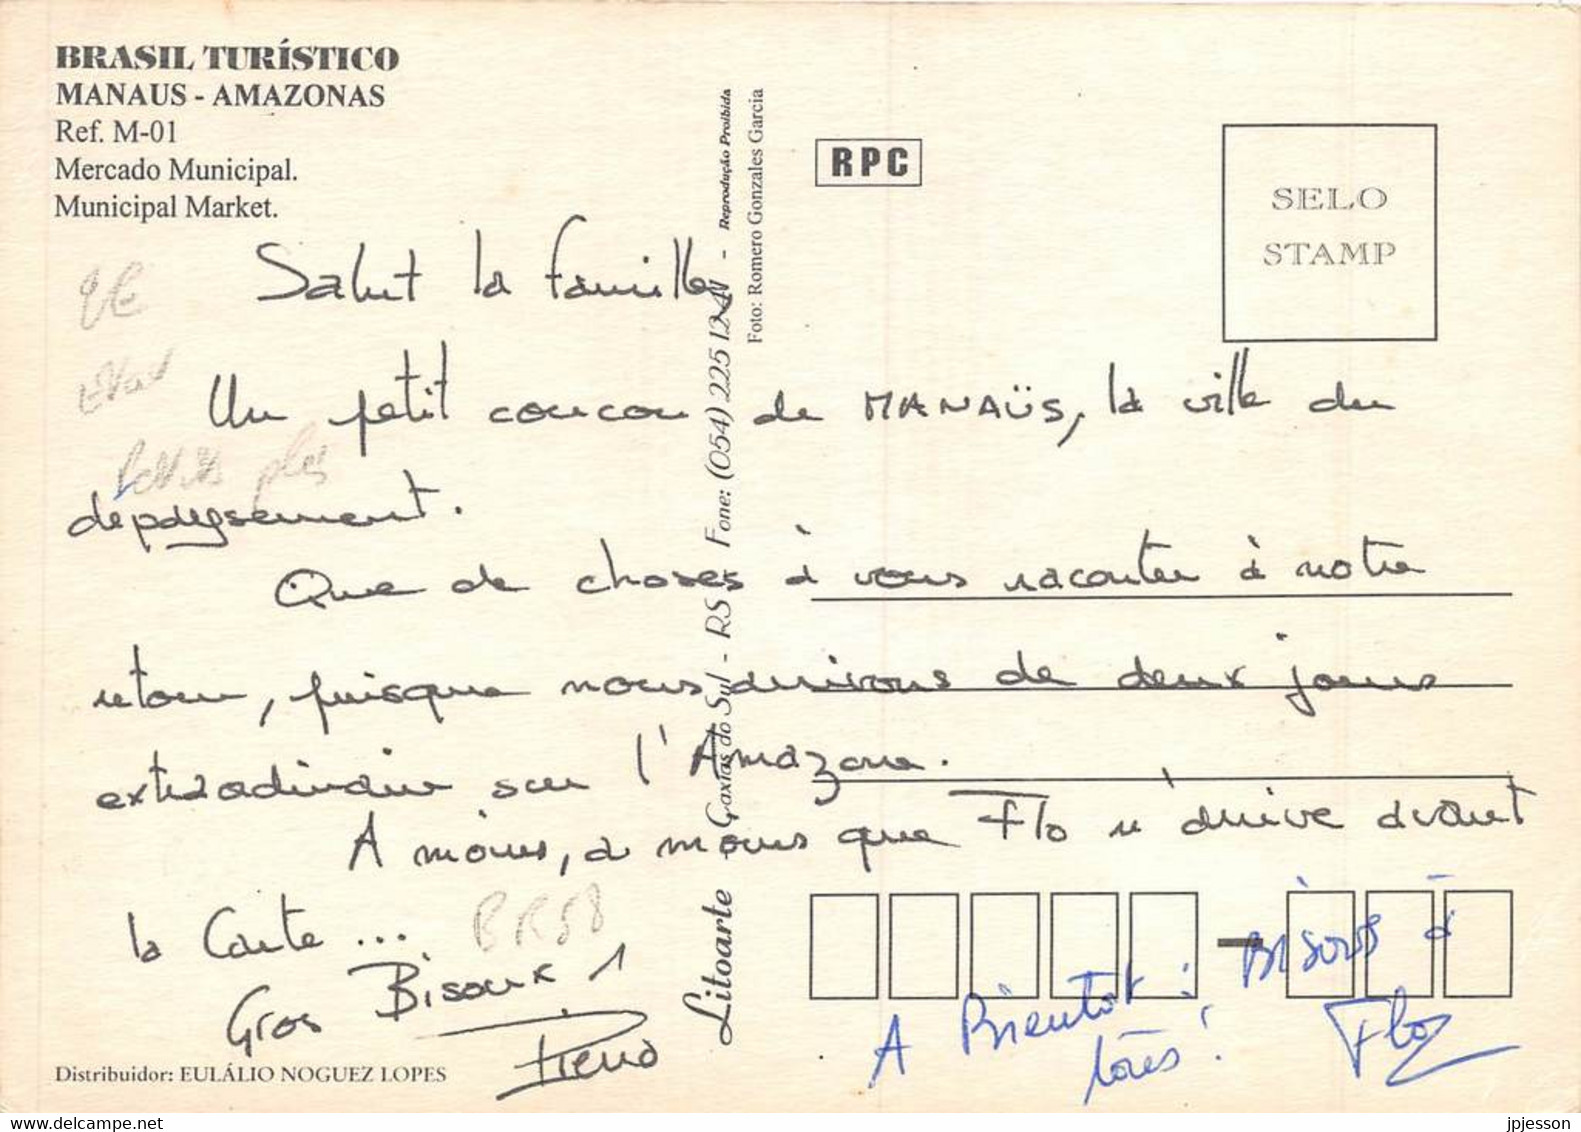 BRASIL TURÍSTICO
MANAUS - AMAZONAS
Ref. M-01
Mercado Municipal.
Municipal Market.
RPC
SELO
STAMP
Litoarte - Caxias do Sul - RS - Fone: (054) 225 1241 - Reprodução Proibida
Foto: Romero Gonzales Garcia
Salut la famille,
Un petit coucou de MANAÜS, la ville du
depaysement.
Que de choses à vous raconter à notre
retour, puisque nous arrivons de deux jours
extraordinaire sur l'Amazone.
A moins, a moins que Flo n'arrive avant
la Carte ...
BR58
Gros Bisoux !
A Bientôt ! Bisous à
tous !
Flo
Distribuidor: EULÁLIO NOGUEZ LOPES
jpjesson